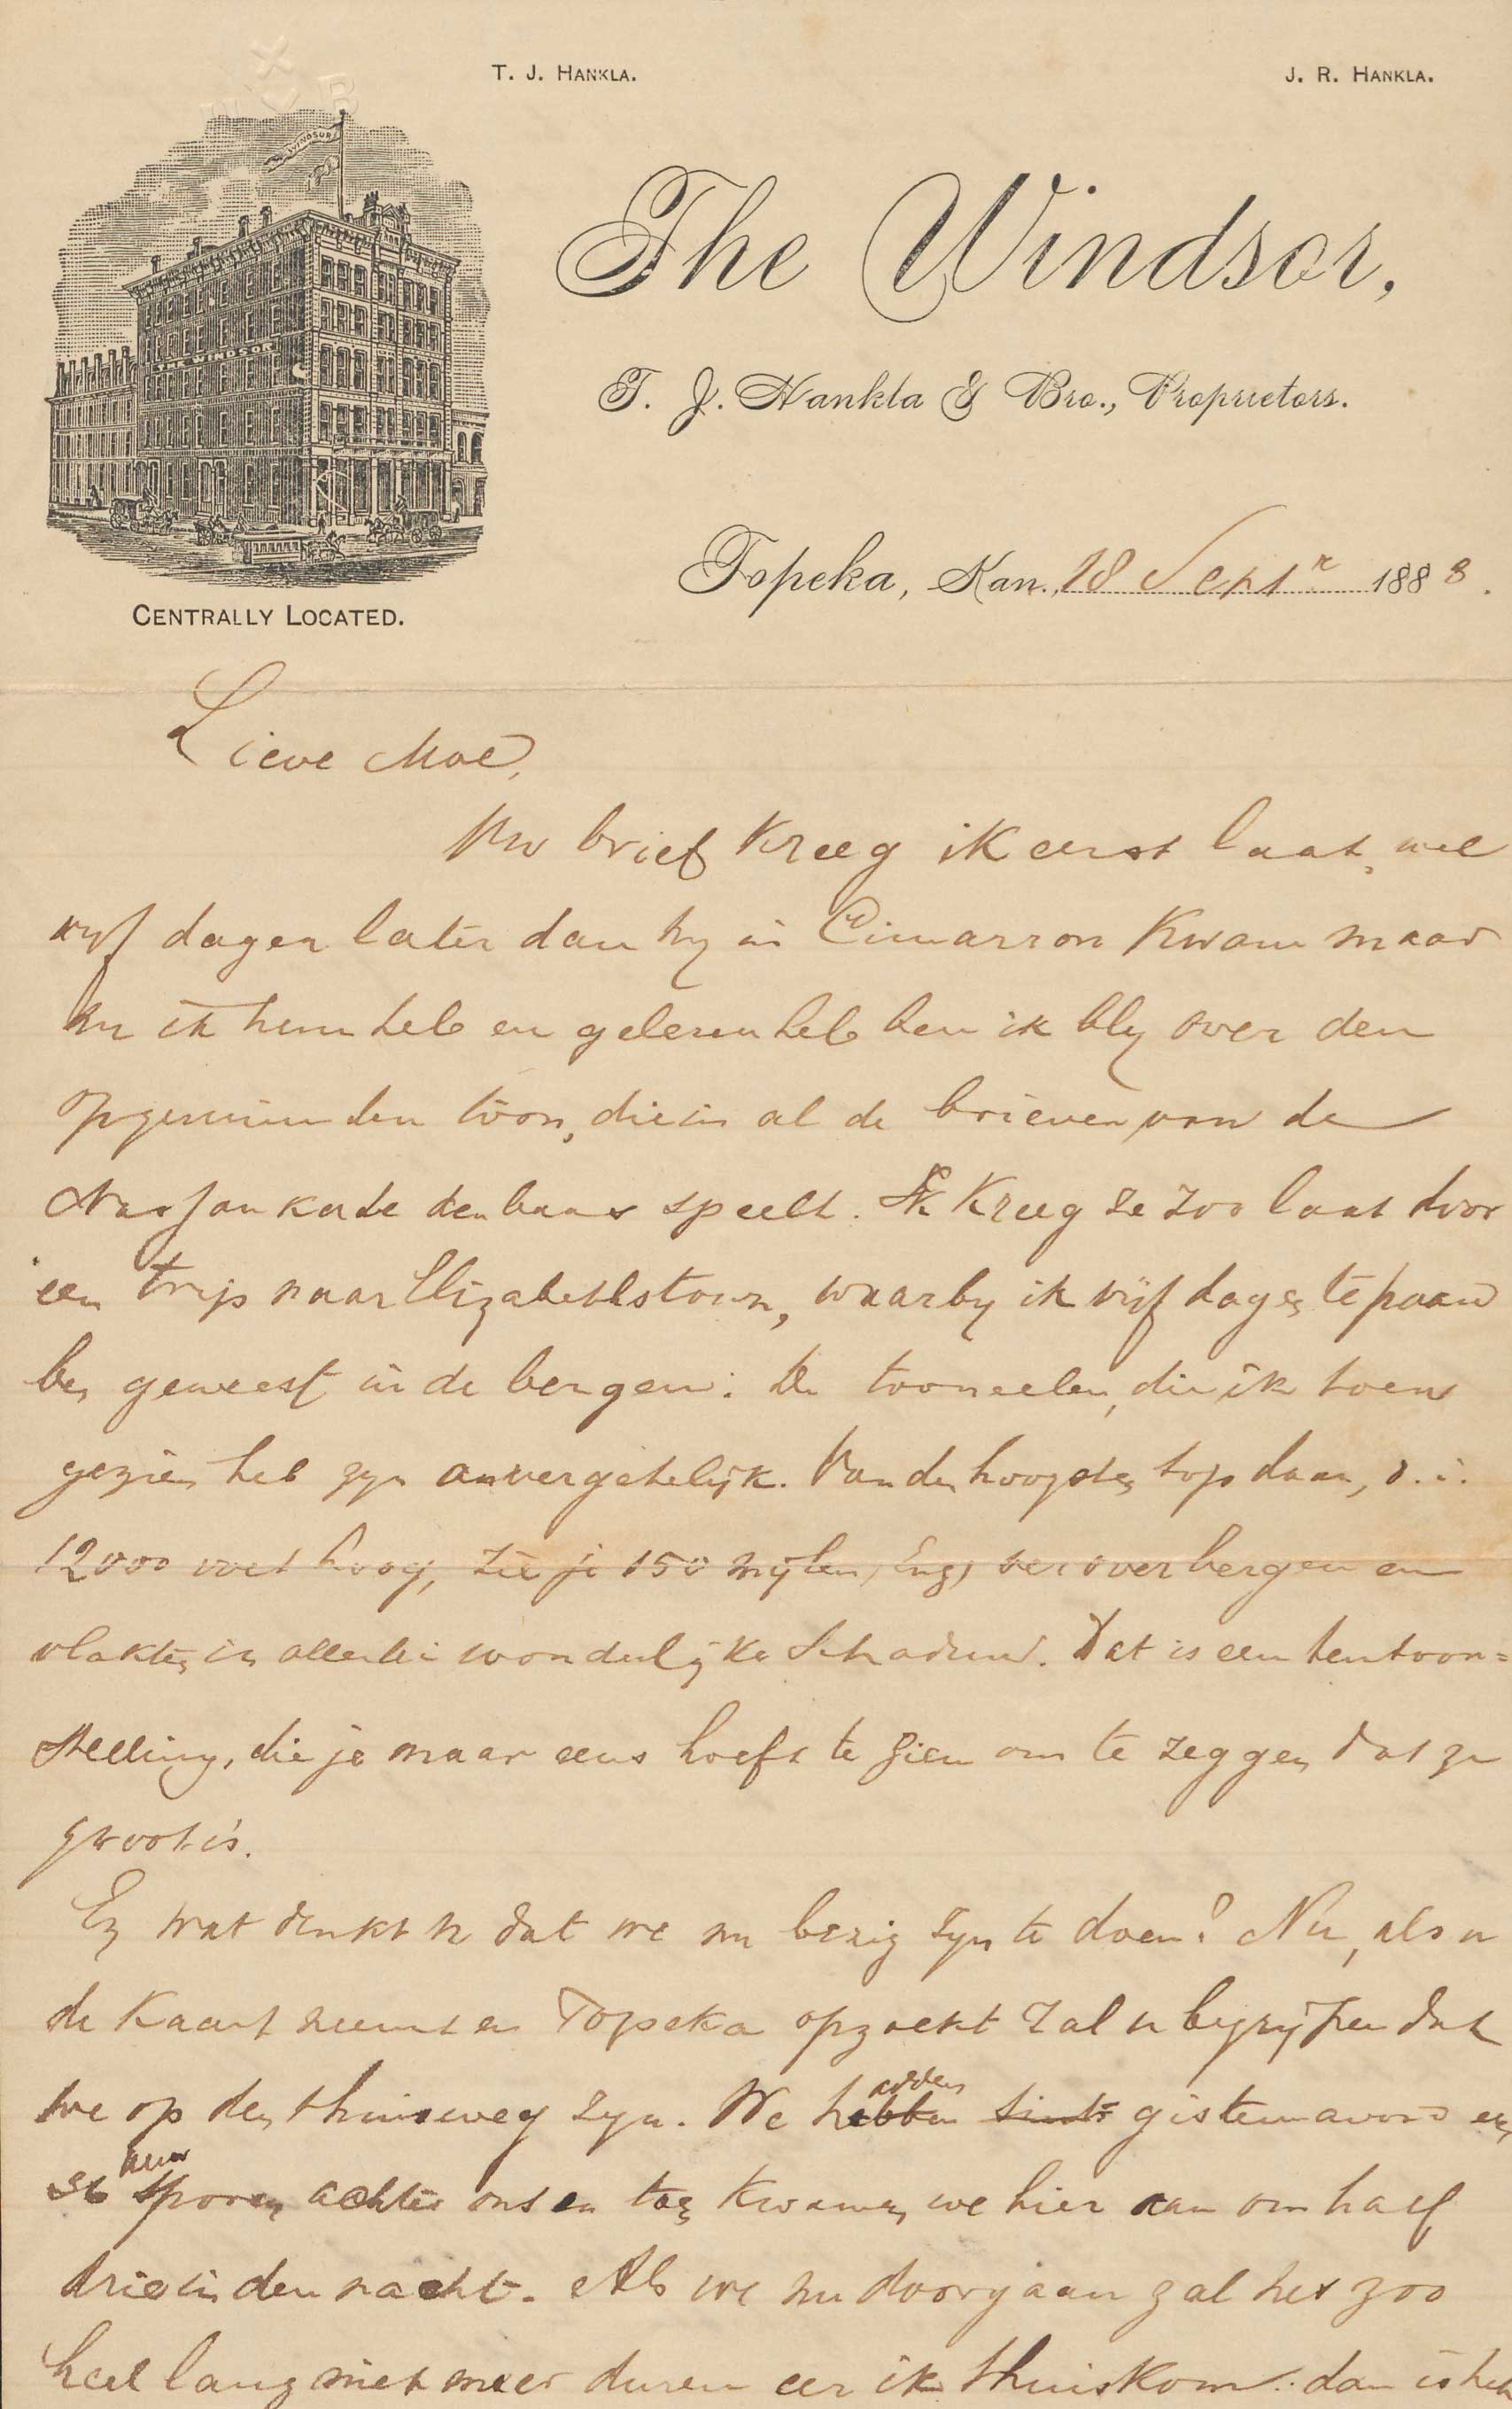 T. J. HANKLA.
J. R. HANKLA.
WINDSOR
THE WINDSOR
The Windsor,
T. J. Hankla & Bro., Proprietors.
Topeka, Kan., 18 Septr 1888.
CENTRALLY LOCATED.
Lieve Moe,
Uw brief kreeg ik eerst laat, wel
vyf dagen later dan hy in Cimarron kwam maar
nu ik hem heb en gelezen heb ben ik bly over den
opgewonden toon, die in al de brieven van de
Nassaukade den baas speelt. Ik kreeg ze zoo laat door
een trip naar Elizabethstown, waarby ik vijf dagen te paard
ben geweest in de bergen. De tooneelen, die ik toen
gezien heb zyn onvergetelijk. Van den hoogsten top daar, d.i.
12000 voet hoog, zie je 150 mijlen (Eng) ver over bergen en
vlakten in allerlei wonderlijke schaduw. Dat is een tentoon=
stelling, die je maar eens hoeft te zien om te zeggen dat ze
groot is.
En wat denkt u dat we nu bezig zyn te doen? Nu, als u
de kaart neemt en Topeka opzoekt zal u begrijpen dat
we op den thuisweg zyn. We hadden hebben sinds gisterenavond een
36 uur sporen achter ons en toen kwamen we hier aan om half
drie in den nacht. Als we nu doorgaan zal het zoo
heel lang niet meer duren eer ik thuiskom: dan is het